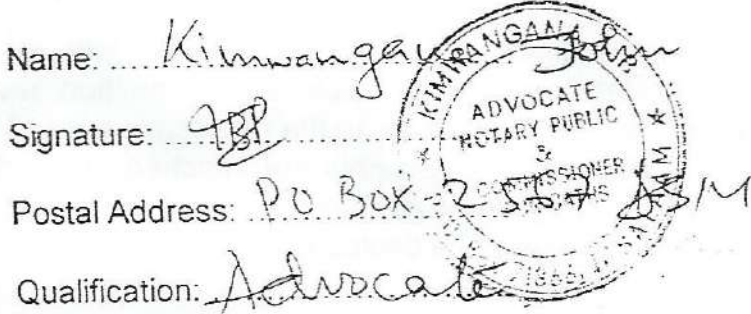 Name: Kimwangana John
Signature:
Postal Address: P O Box 2557 DSM
Qualification: Advocate
KIMWANGANA
ADVOCATE
NOTARY PUBLIC
&
COMMISSIONER
OATHS